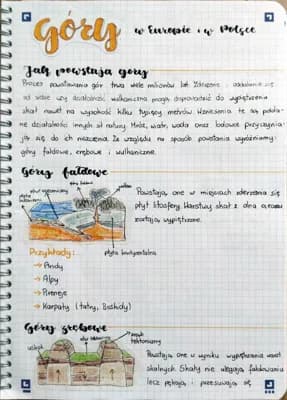 Góry w Europie i w Polsce
Jak powstają góry
Proces powstawania gór trwa wiele milionów lat. Zderzenie i oddalanie się
od siebie czy działalność wulkaniczna mogą doprowadzić do wypiętrzenia
skał nawet na wysokość kilku tysięcy metrów. Wzniesienia te są podda-
ne działalności innych sił natury. Mróz, wiatr, woda oraz lodowce przyczynia-
ją się do ich niszczenia. Ze względu na sposób powstania wyróżniamy:
góry fałdowe, zrębowe i wulkaniczne.
Góry fałdowe
Powstają one w miejscach zderzania się
płyt litosfery. Warstwy skał z dna oceanu
zostają wypiętrzone.
płyta kontynentalna
Przykłady:
→ Andy
→ Alpy
→ Pireneje
→ Karpaty (Tatry, Beskidy)
Góry zrębowe
uskok
Powstają one w wyniku wypiętrzania warstw
skalnych. Skały nie ulegają fałdowaniu
lecz pękają i przesuwają się